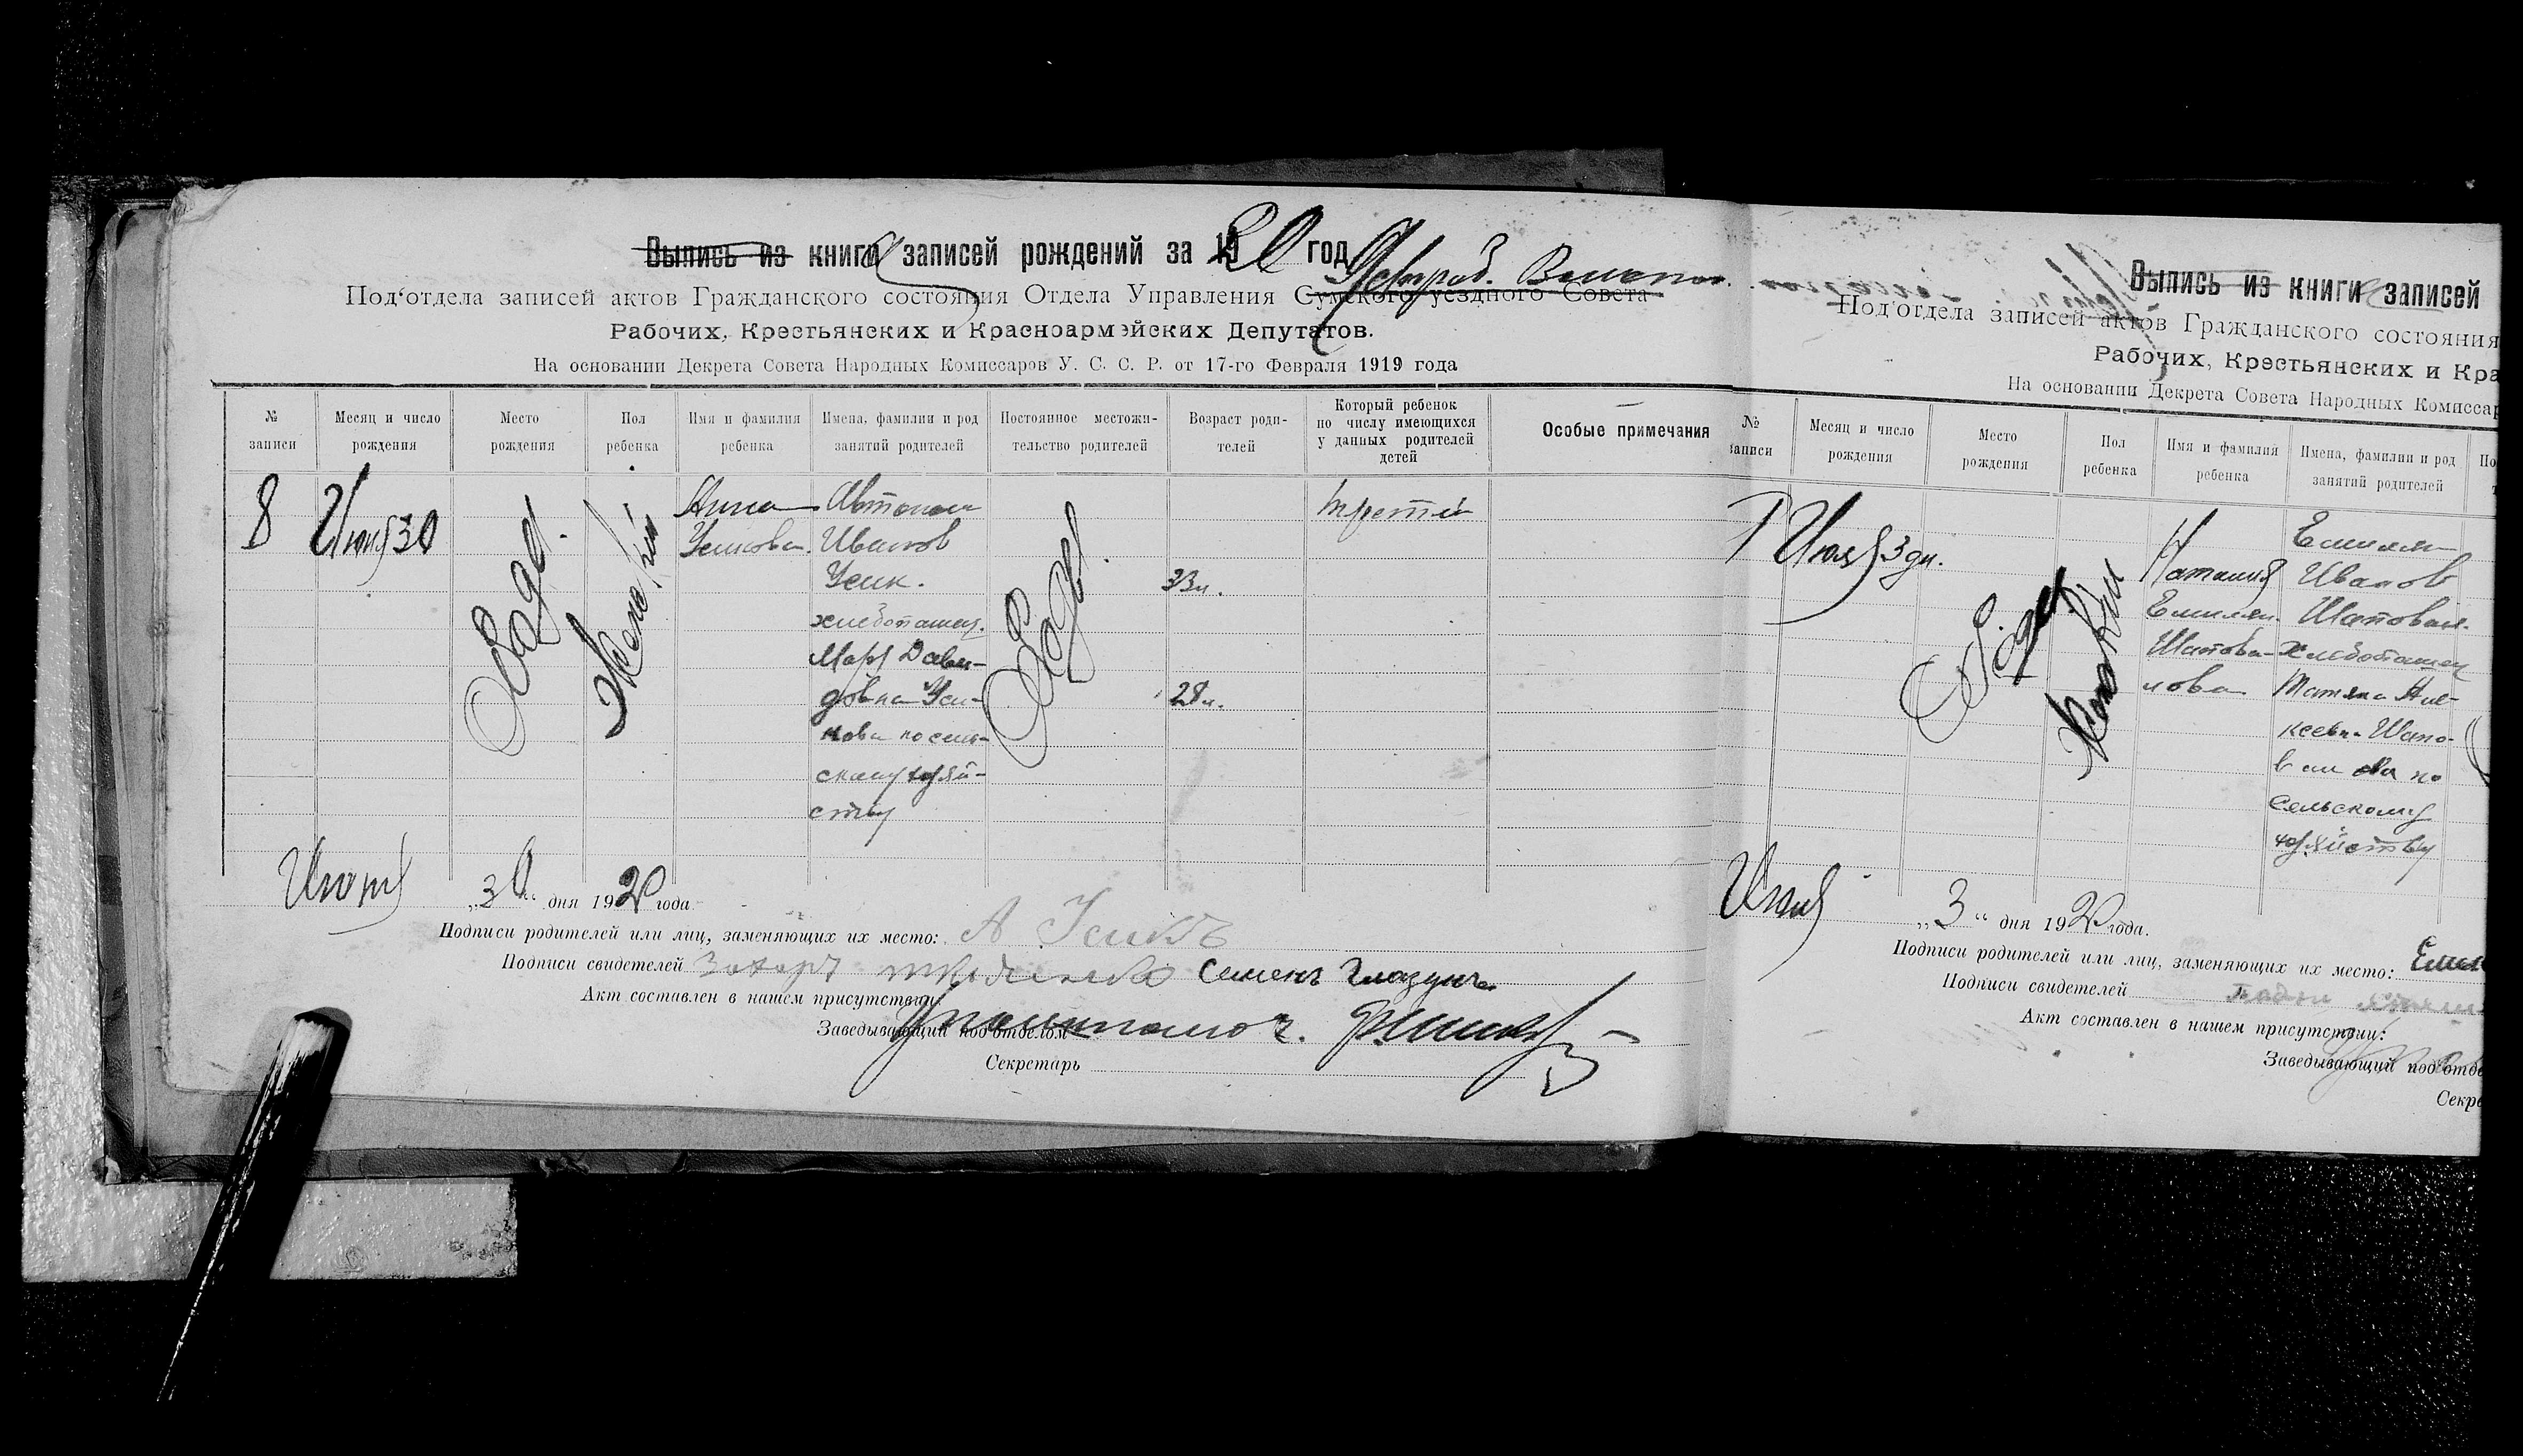 Выпись из книги записей рождений за 1920 год
Под'отдела записей актов Гражданского состояния Отдела Управления Сумского уездного Совета
Рабочих, Крестьянских и Красноармейских Депутатов.
На основании Декрета Совета Народных Комиссаров У. С. С. Р. от 17-го Февраля 1919 года
№ записи
Месяц и число рождения
Место рождения
Пол ребенка
Имя и фамилия ребенка
Имена, фамилии и род занятий родителей
Постоянное местожительство родителей
Возраст родителей
Который ребенок по числу имеющихся у данных родителей детей
Особые примечания
8
Июня 30
Женский
Анна
Усикова
Автоном
Иванов
Усик.
хлебопашец.
Мар Дави-
довна Уси-
кова по сель-
скому хозяй-
ству
33 л.
28 л.
третий
Июня „30“ дня 1920 года
Подписи родителей или лиц, заменяющих их место: А Усикъ
Подписи свидетелей Захаръ Семенъ Глазунъ
Акт составлен в нашем присутствии:
Заведывающий под'отделом
Секретарь
Выпись из книги записей
Под'отдела записей актов Гражданского состояния
Рабочих, Крестьянских и Кра
На основании Декрета Совета Народных Комиссар
№ записи
Месяц и число рождения
Место рождения
Пол ребенка
Имя и фамилия ребенка
Имена, фамилии и род занятий родителей
По
Июля 3 дн.
Женский
Наталия
Емилян.
Шапова-
лова
Емилян
Иванов
Шаповал.
хлебопашец
Татяна Але-
ксевн. Шапо-
валова по
сельскому
хозяйству
Июля „3“ дня 1920 года.
Подписи родителей или лиц, заменяющих их место: Емил
Подписи свидетелей
Акт составлен в нашем присутствии:
Заведывающий под'отде
Секре